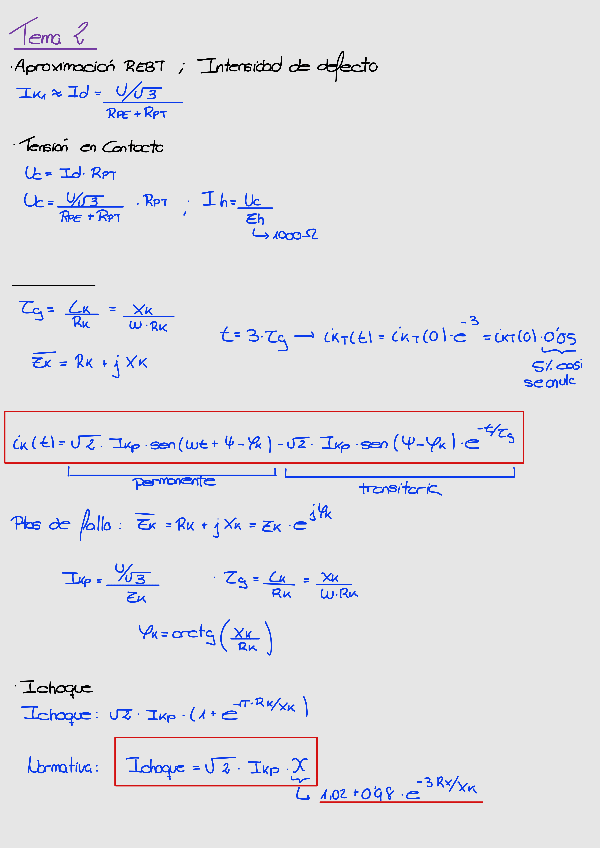 Tema 2
· Aproximación REBT ; Intensidad de defecto
Ik1 ≈ Id = (U/√3) / (RPE + RPT)
· Tensión en Contacto
Uc = Id · RPT
Uc = (U/√3) / (RPE + RPT) · RPT ; Ih = Uc / Zh
↳ 1000 Ω
τg = Lk / Rk = Xk / (ω · Rk)
t = 3 · τg → ikT(t) = ikT(0) · e^-3 = ikT(0) · 0'05
5% casi
se anula
Z̅k = Rk + j Xk
ik(t) = √2 · Ikp · sen(ωt + Ψ - φk) - √2 · Ikp · sen(Ψ - φk) · e^(-t/τg)
permanente transitoria
Ptos de falla : Z̅k = Rk + j Xk = Zk · e^(jφk)
Ikp = (U/√3) / Zk · τg = Lk / Rk = Xk / (ω · Rk)
φk = arctg (Xk / Rk)
· Ichoque
Ichoque : √2 · Ikp · (1 + e^(-π · Rk/Xk))
Normativa : Ichoque = √2 · Ikp · X
↳ 1,02 + 0'98 · e^(-3 Rk/Xk)